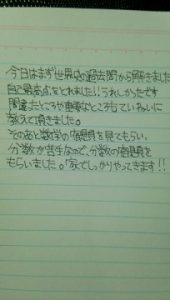 今日はまず世界史の過去問から解きました
自己最高点をとれました!!うれしかったです
間違ったところや重要なところもていねいに
教えて頂きました。
そのあと数学の宿題を見てもらい、
分数が苦手なので、分数の宿題を
もらいました。家でしっかりやってきます!!